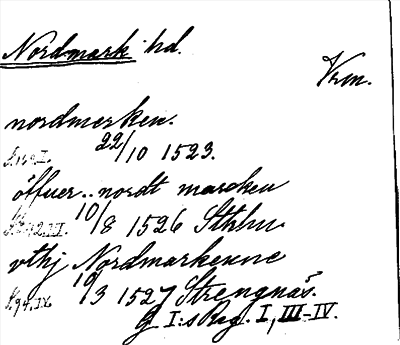 Nordmark hd.
Vrm.
nordmerken.
22/10 1523.
öffuer.. nordt marcken
10/8 1526 Sthlm
vthj Nordmarkenne
19/3 1527 Strengnäs.
G. I:s Reg. I, III-IV.